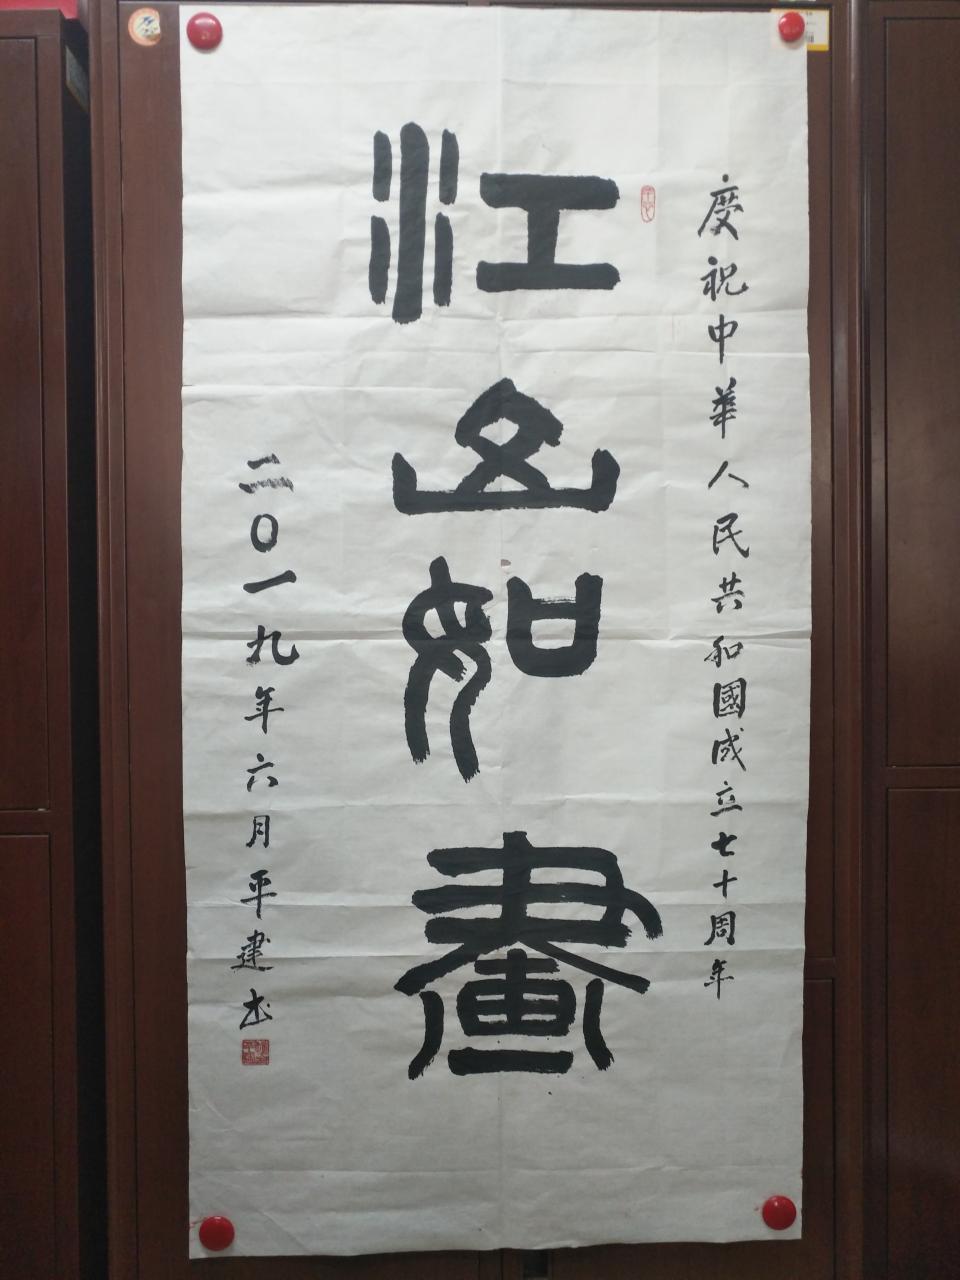 慶祝中華人民共和國成立七十周年
江山如畫
二〇一九年六月平建书